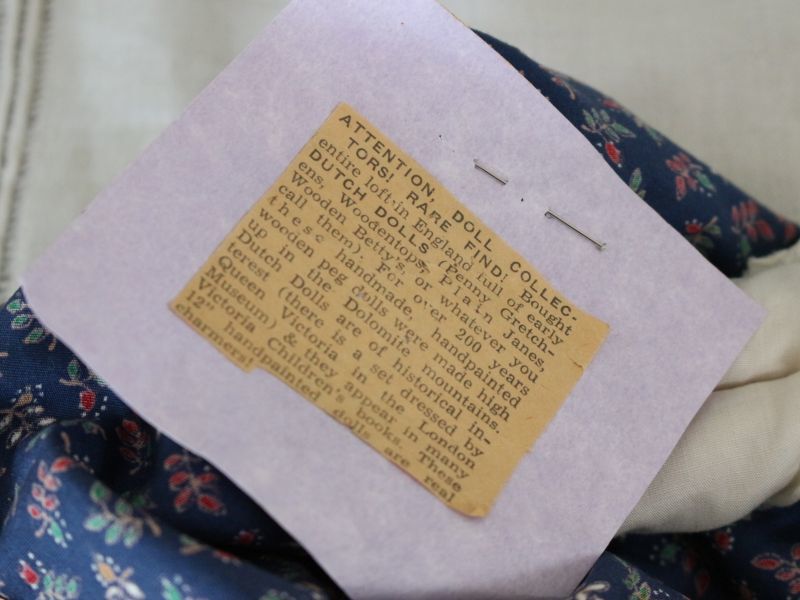 ATTENTION, DOLL COLLEC-
TORS! RARE FIND! Bought
entire loft in England full of early
DUTCH DOLLS (Penny Gretch-
ens, Woodentops, Plain Janes,
Wooden Betty's, or whatever you
call them). For over 200 years
these handmade, handpainted
wooden peg dolls were made high
up in the Dolomite mountains.
Dutch Dolls are of historical in-
terest (there is a set dressed by
Queen Victoria in the London
Museum) & they appear in many
Victoria Children's books. These
12" handpainted dolls are real
charmers!